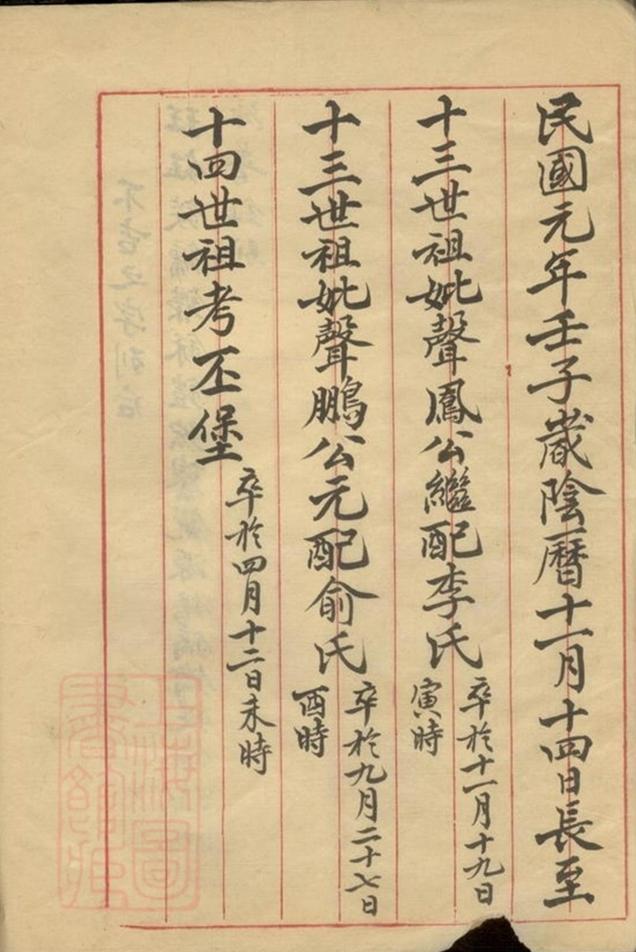 民國元年壬子歲陰曆十一月十四日長至
十三世祖妣聲鳳公繼配李氏 卒於十一月十九日
寅時
十三世祖妣聲鵬公元配俞氏 卒於九月二十七日
酉時
十四世祖考丕堡 卒於四月十二日未時
上海圖書館藏